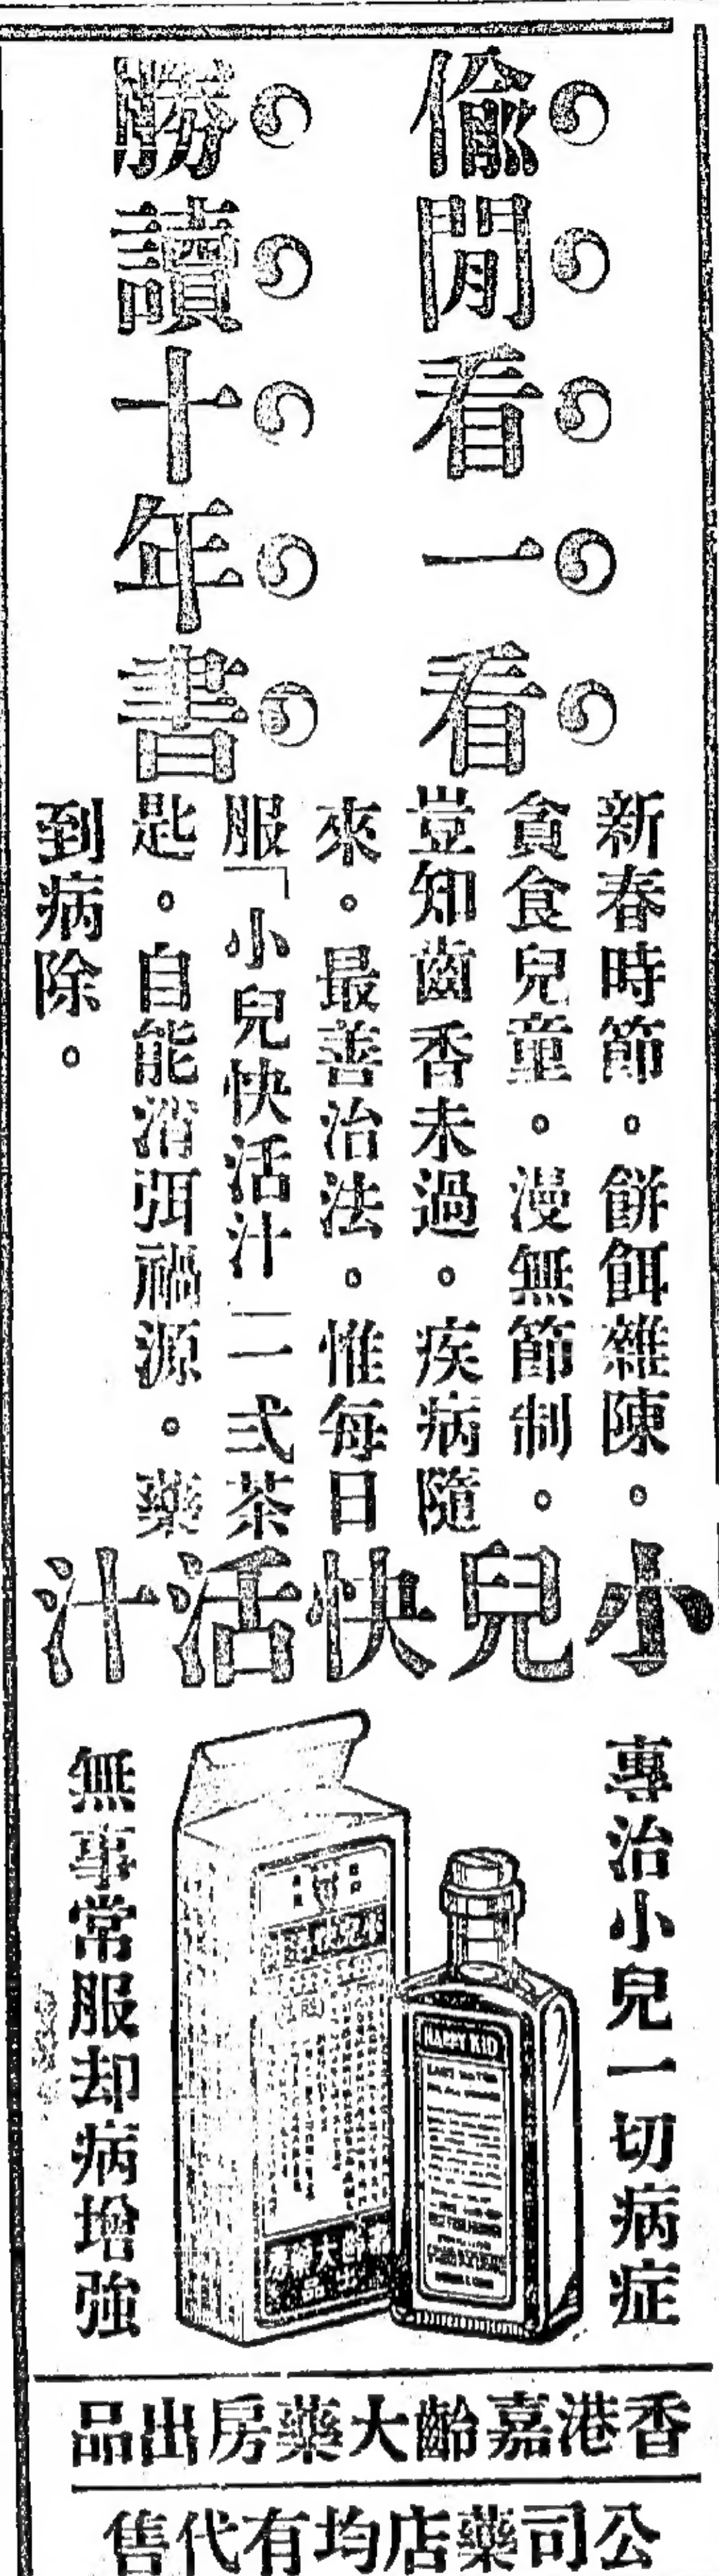 偸閒看一看
勝讀十年書
新春時節。餅餌雜陳。
貪食兒童。漫無節制。
豈知齒香未過。疾病隨
來。最善治法。惟每日
服「小兒快活汁」一二式茶
匙。自能消弭禍源。藥
到病除。
小兒快活汁
專治小兒一切病症
HAPPY KID
無事常服却病增強
香港嘉齡大藥房出品
公司藥店均有代售